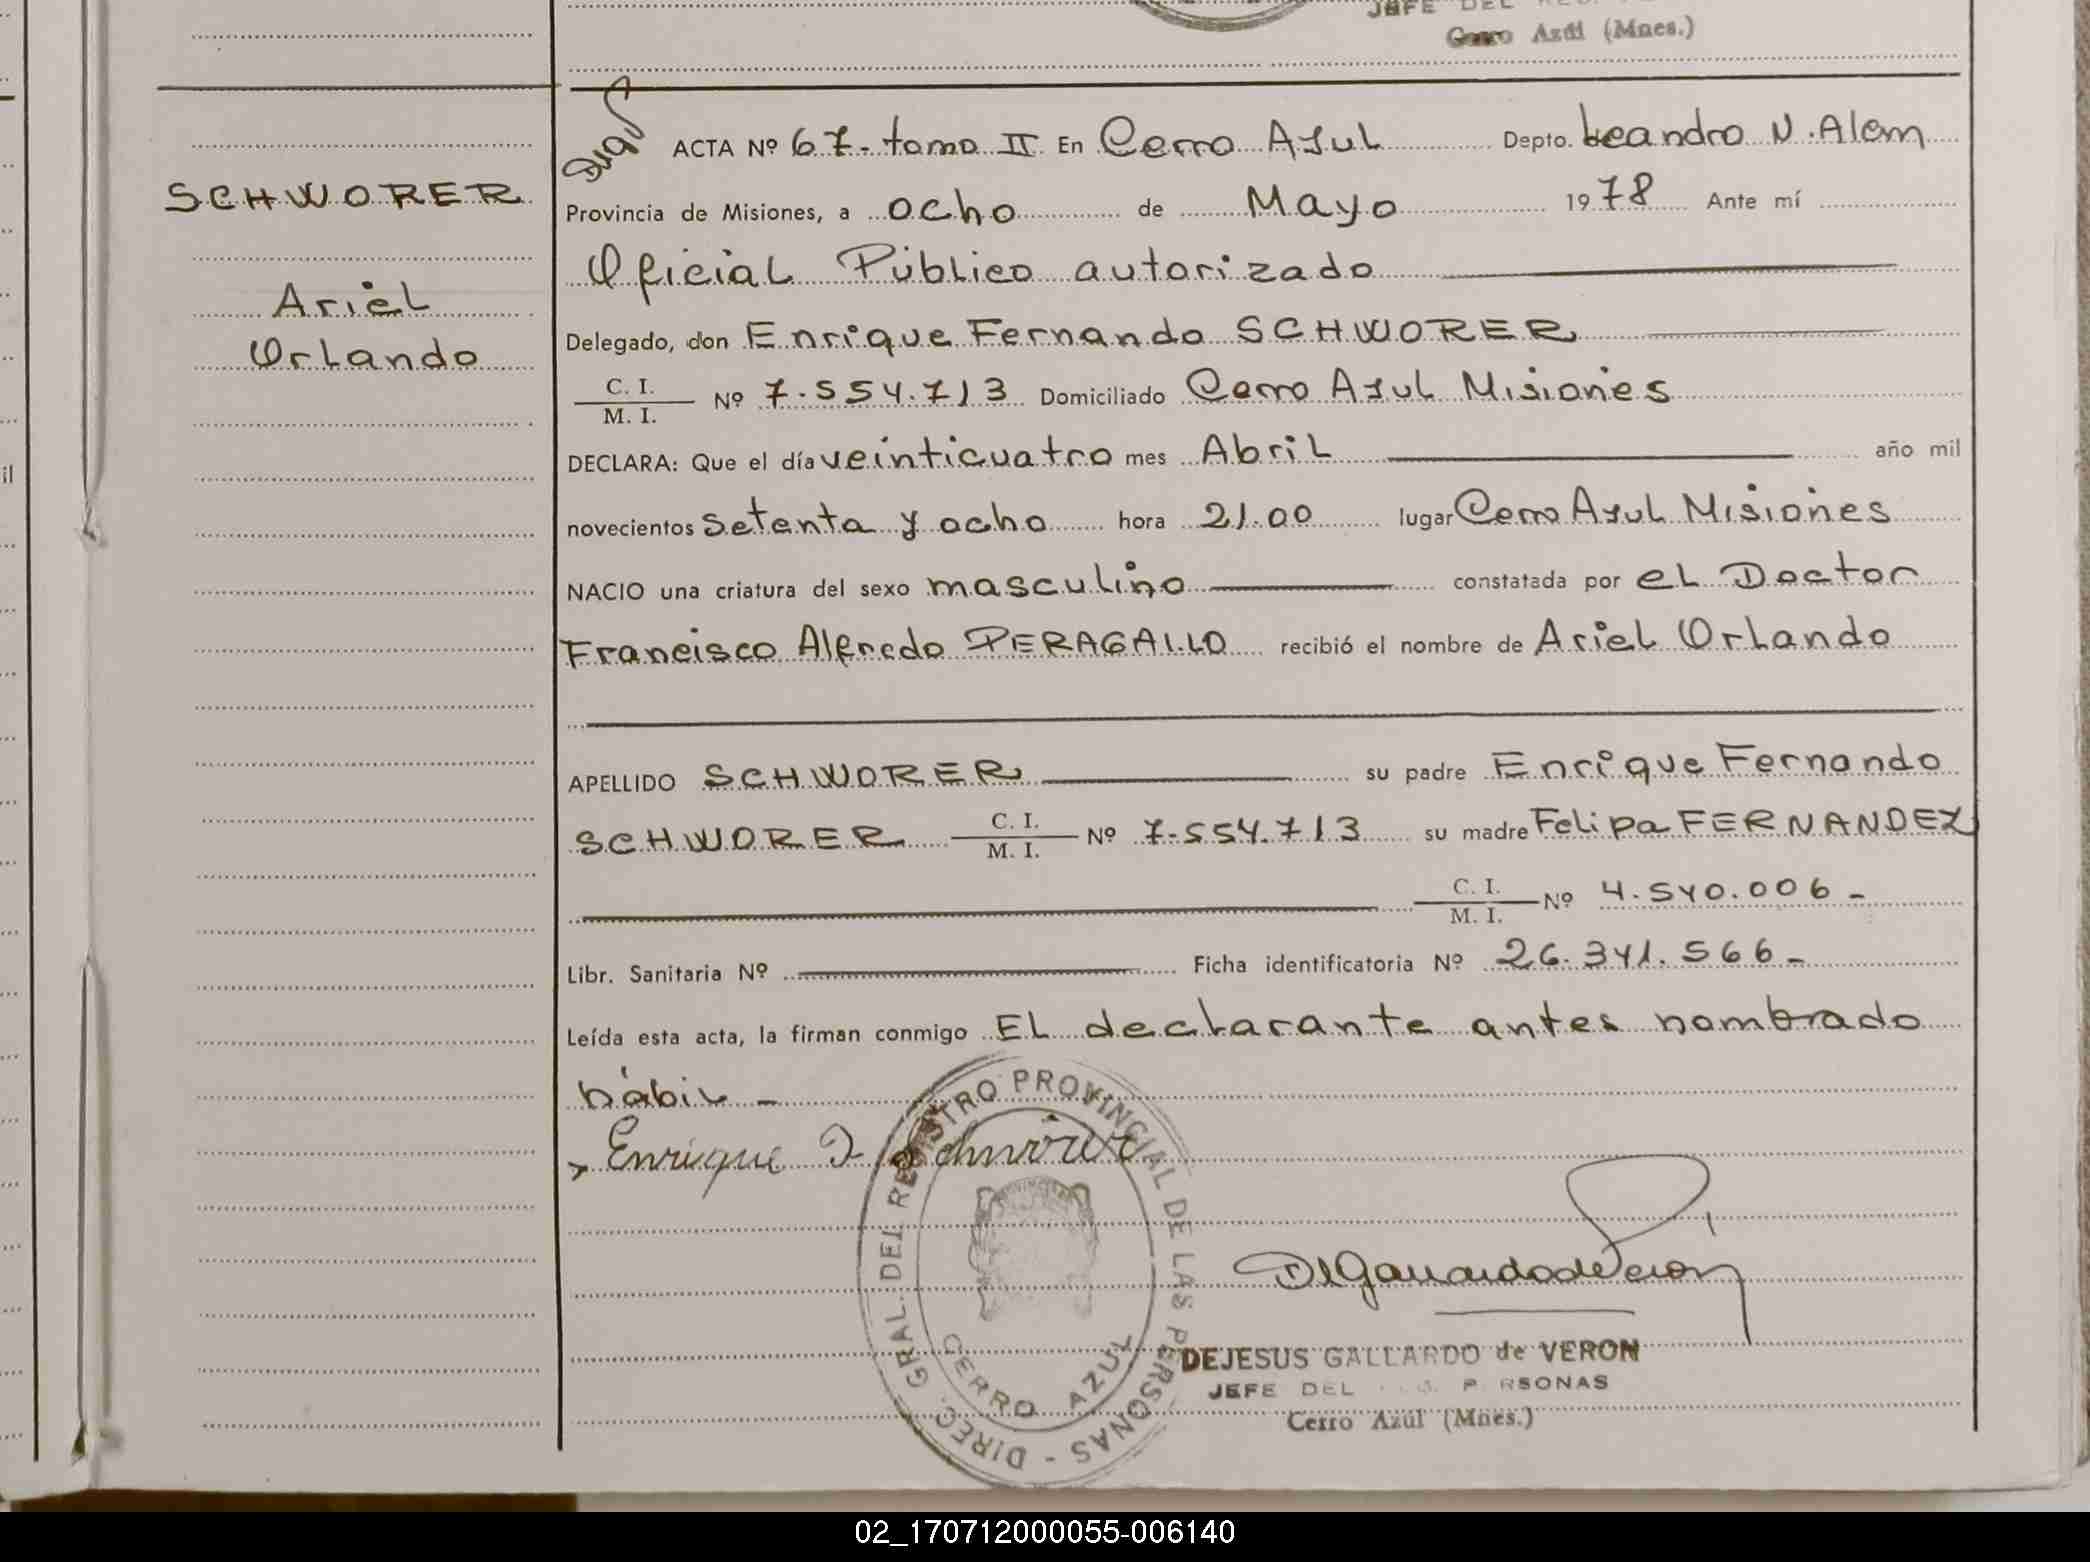 JEFE DEL
Cerro Azúl (Mnes.)
ACTA Nº 67- tomo II En Cerro Azul Depto. Leandro N. Alem
SCHWORER
Provincia de Misiones, a ocho de Mayo 1978 Ante mí
Oficial Público autorizado
Ariel
Orlando
Delegado, don Enrique Fernando SCHWORER
C. I.
M. I. Nº 7.554.713 Domiciliado Cerro Azul Misiones
DECLARA: Que el día veinticuatro mes Abril año mil
novecientos setenta y ocho hora 21.00 lugar Cerro Azul Misiones
NACIO una criatura del sexo masculino constatada por el Doctor
Francisco Alfredo PERAGALLO recibió el nombre de Ariel Orlando
APELLIDO SCHWORER su padre Enrique Fernando
SCHWORER C. I. M. I. Nº 7.554.713 su madre Felipa FERNANDEZ
C. I. M. I. Nº 4.540.006-
Libr. Sanitaria Nº Ficha identificatoria Nº 26.341.566-
Leída esta acta, la firman conmigo El declarante antes nombrado
hábil -
Enrique F. Schwörer
DIREC. GRAL. DEL REGISTRO PROVINCIAL DE LAS PERSONAS -
CERRO AZUL
DGallardo de Veron
DEJESUS GALLARDO de VERON
JEFE DEL PERSONAS
Cerro Azúl (Mnes.)
il
02_170712000055-006140